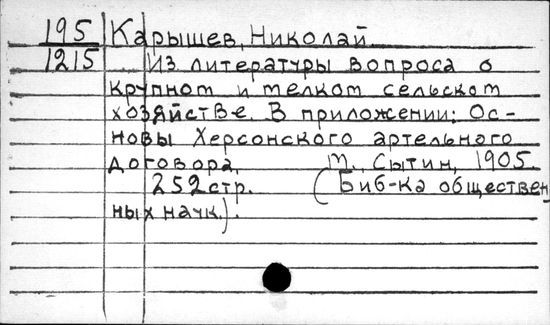 195 Карышев, Николай
1215 Из литературы вопроса о
крупном и мелком сельском
хозяйстве. В приложении: Ос-
новы Херсонского артельного
договора. М., Сытин, 1905.
252 стр. (Биб-ка обществен
ных наук.).